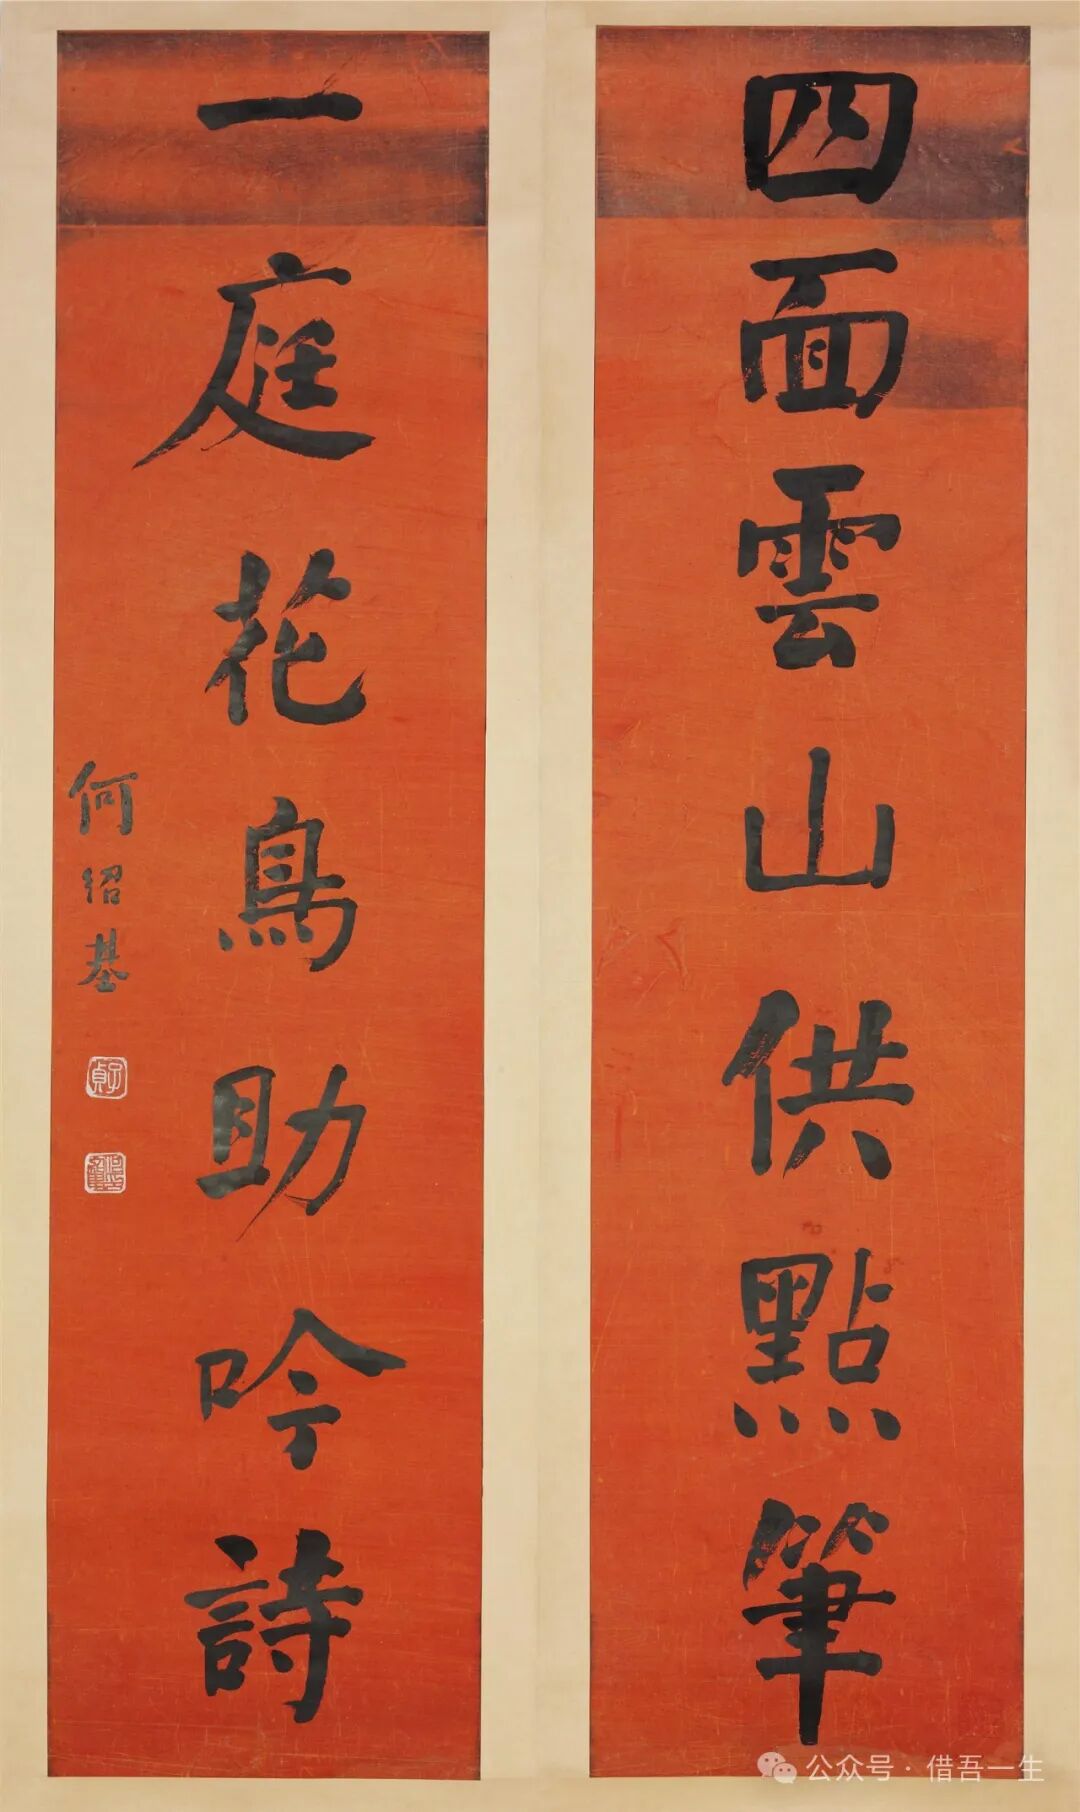 四面雲山供點筆
一庭花鳥助吟詩
何紹基
子貞
公众号·借吾一生